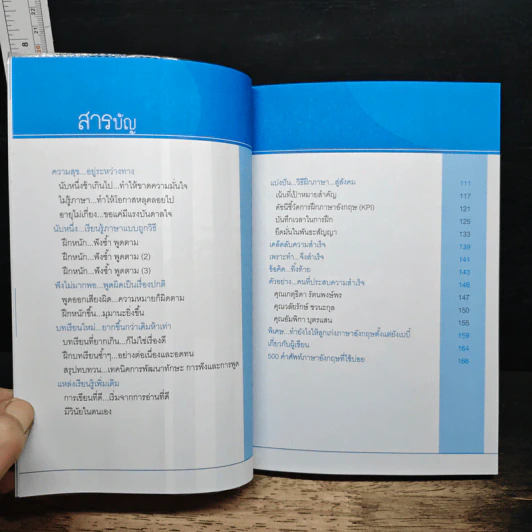 สารบัญ
ความสุข...อยู่ระหว่างทาง
นับหนึ่งช้าเกินไป...ทำให้ขาดความมั่นใจ
ไม่รู้ภาษา...ทำให้โอกาสหลุดลอยไป
อายุไม่เกี่ยง...ขอแค่มีแรงบันดาลใจ
นับหนึ่ง...เรียนรู้ภาษาแบบถูกวิธี
ฝึกหนัก...ฟังซ้ำ พูดตาม
ฝึกหนัก...ฟังซ้ำ พูดตาม (2)
ฝึกหนัก...ฟังซ้ำ พูดตาม (3)
ฟังไม่มากพอ...พูดผิดเป็นเรื่องปกติ
พูดออกเสียงผิด...ความหมายก็ผิดตาม
ฝึกหนักขึ้น...มุมานะยิ่งขึ้น
บทเรียนใหม่...ยากขึ้นกว่าเดิมห้าเท่า
บทเรียนที่ยากเกิน...ก็ไม่ใช่เรื่องดี
ฝึกบทเรียนซ้ำๆ...อย่างต่อเนื่องและอดทน
สรุปทบทวน...เทคนิคการพัฒนาทักษะ การฟังและการพูด
แหล่งเรียนรู้เพิ่มเติม
การเขียนที่ดี...เริ่มจากการอ่านที่ดี
มีวินัยในตนเอง
แบ่งปัน...วิธีฝึกภาษา...สู่สังคม 111
เน้นที่เป้าหมายสำคัญ 117
ดัชนีชี้วัดการฝึกภาษาอังกฤษ (KPI) 121
บันทึกเวลาในการฝึก 125
ยึดมั่นในพันธะสัญญา 133
เคล็ดลับความสำเร็จ 139
เพราะทำ...จึงสำเร็จ 141
ข้อคิด...ทิ้งท้าย 143
ตัวอย่าง...คนที่ประสบความสำเร็จ 146
คุณเกตุธิดา รัตนพงษ์พร 147
คุณวศัยรักษ์ ชวนะกุล 150
คุณอัมพิกา บุตรแสน 155
พิเศษ...ทำยังไงให้ลูกเก่งภาษาอังกฤษตั้งแต่ยังเบบี๋ 159
เกี่ยวกับผู้เขียน 164
500 คำศัพท์ภาษาอังกฤษที่ใช้บ่อย 166